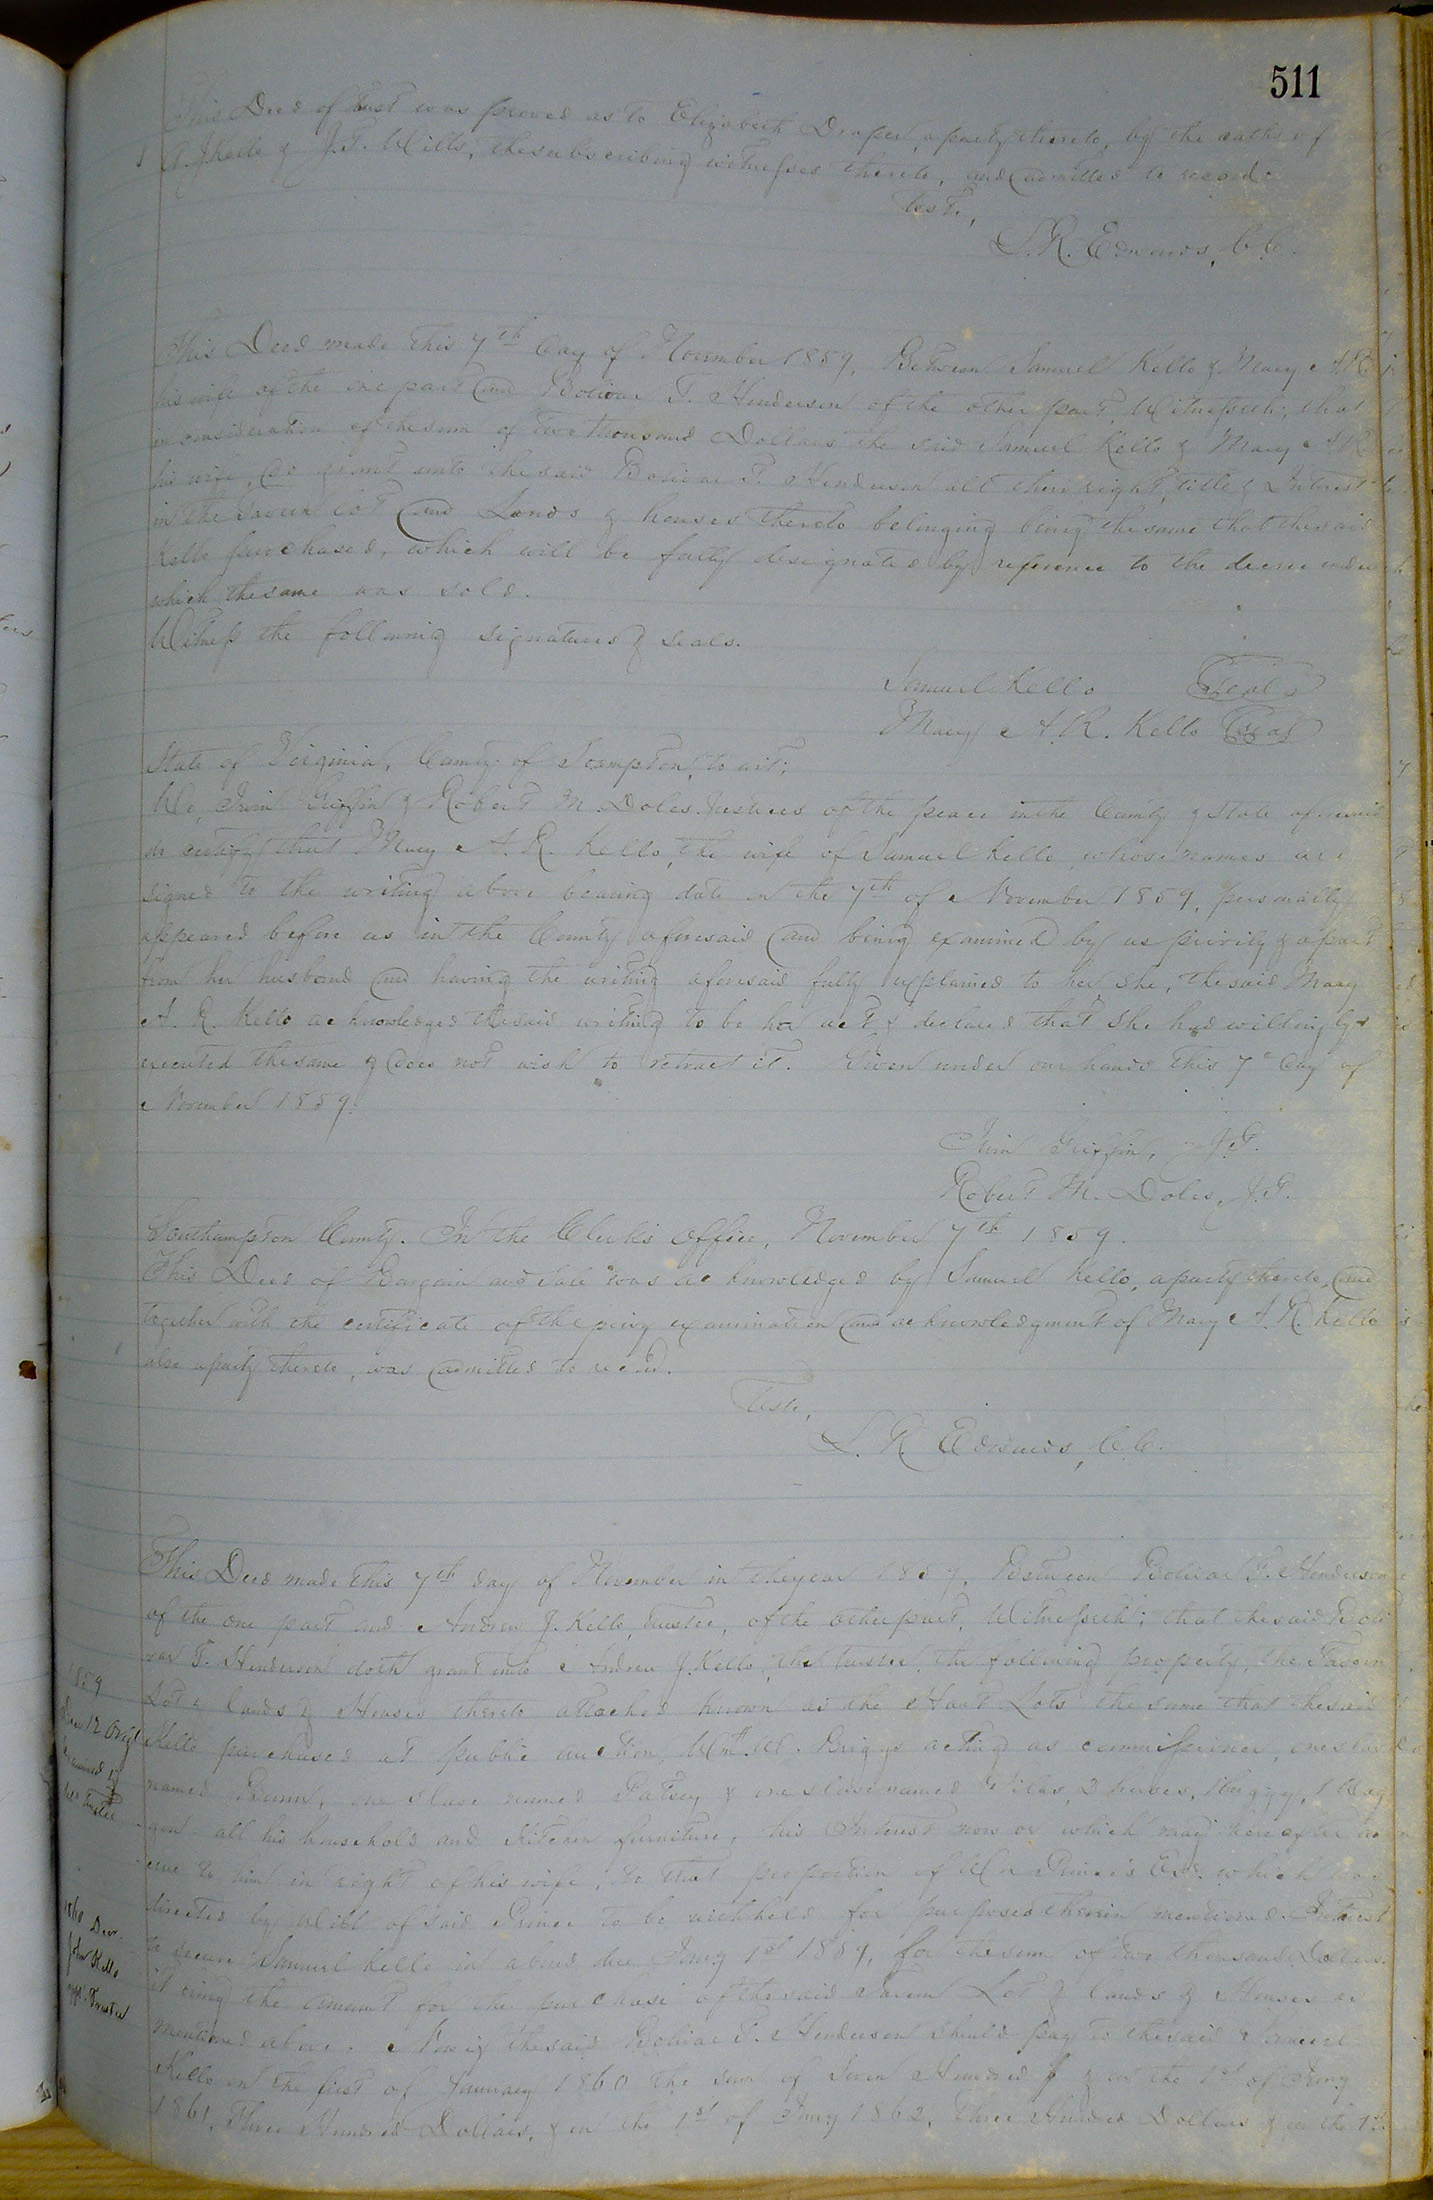 511
This Deed of Trust was proved as to Elizabeth Draper, a party thereto, by the oaths of
A. J. Kello & J. T. Wills, the subscribing witnesses thereto, and admitted to record.
Test,
L. R. Edwards, C. C.
This Deed made this 7th day of November 1859, Between Samuel Kello & Mary A. R.
his wife of the one part and Bolivar F. Henderson of the other part, Witnesseth; that
in consideration of the sum of two thousand Dollars the said Samuel Kello & Mary A. R.
his wife, do grant unto the said Bolivar F. Henderson all their right, title & Interest
in the Tavern Lot and Lands & houses thereto belonging being the same that the said
Kello purchased, which will be fully designated by reference to the decree under
which the same was sold.
Witness the following signatures & seals.
Samuel Kello Seal
Mary A. R. Kello Seal
State of Virginia, County of Southampton, to wit;
We, Griffin & Robert M. Doles Justices of the peace in the County & State aforesaid
do certify that Mary A. R. Kello, the wife of Samuel Kello whose names are
signed to the writing above bearing date on the 7th of November 1859, personally
appeared before us in the County aforesaid and being examined by us privily & apart
from her husband and having the writing aforesaid fully explained to her she, the said Mary
A. R. Kello acknowledged the said writing to be her act & declared that she had willingly
executed the same & does not wish to retract it. Given under our hands this 7th day of
November 1859.
Griffin, J. P.
Robert M. Doles, J. P.
Southampton County. In the Clerk's Office, November 7th 1859.
This Deed of Bargain and Sale was acknowledged by Samuel Kello, a party thereto, and
together with the certificate of the privy examination and acknowledgment of Mary A. R. Kello
also a party thereto, was admitted to record.
Teste,
L. R. Edwards, C. C.
This Deed made this 7th day of November in the year 1859, Between Bolivar F. Henderson
of the one part and Andrew J. Kello, trustee, of the other part, Witnesseth; that the said Boli
var F. Henderson doth grant unto Andrew J. Kello, the trustee, the following property, the Tavern
Lot & lands & Houses thereto attached known as the Lots the same that the said
Kello purchased at public auction, Wm. W. Briggs acting as commissioner, one slave
named one slave named Patsey & one slave named Silas, 2 horses, 1 buggy, 1 Wag
gon all his household and Kitchen furniture, his Interest now or which may hereafter
to him in right of his wife, to that proportion of Prince's Est. which
directed by Will of said Prince to be withheld for purposes therein mentioned. In trust
to secure Samuel Kello in a bond due Jany 1st for the sum of two thousand Dollars
it being the amount for the purchase of the said Tavern Lot & lands & Houses as
mentioned above. Now if the said Bolivar F. Henderson should pay to the said Samuel
Kello on the first of January 1860 the sum of Seven Hundred $ & on the 1st of Jany
1861, Three Hundred Dollars, & on the 1st of Jany 1862, Three Hundred Dollars & on the 1st
1859
12 Origl
examined &
Trustee
1860 Decr.
John Kello
Trustee